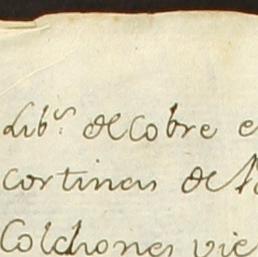 Lib.s de Cobre e
cortinas de la
Colchones vie